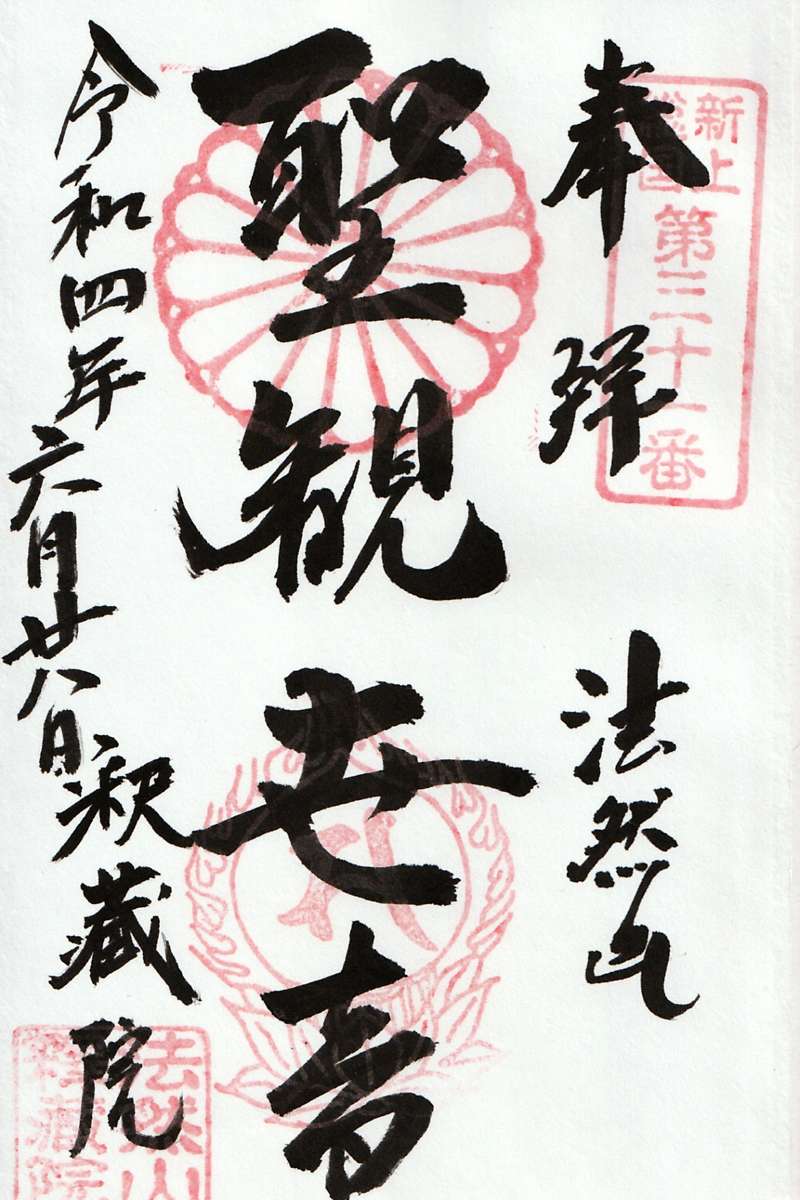 奉拝
新上
総国
第三十一番
法然山
聖観世音
令和四年六月廿八日
釈蔵院
法然山
釈蔵院